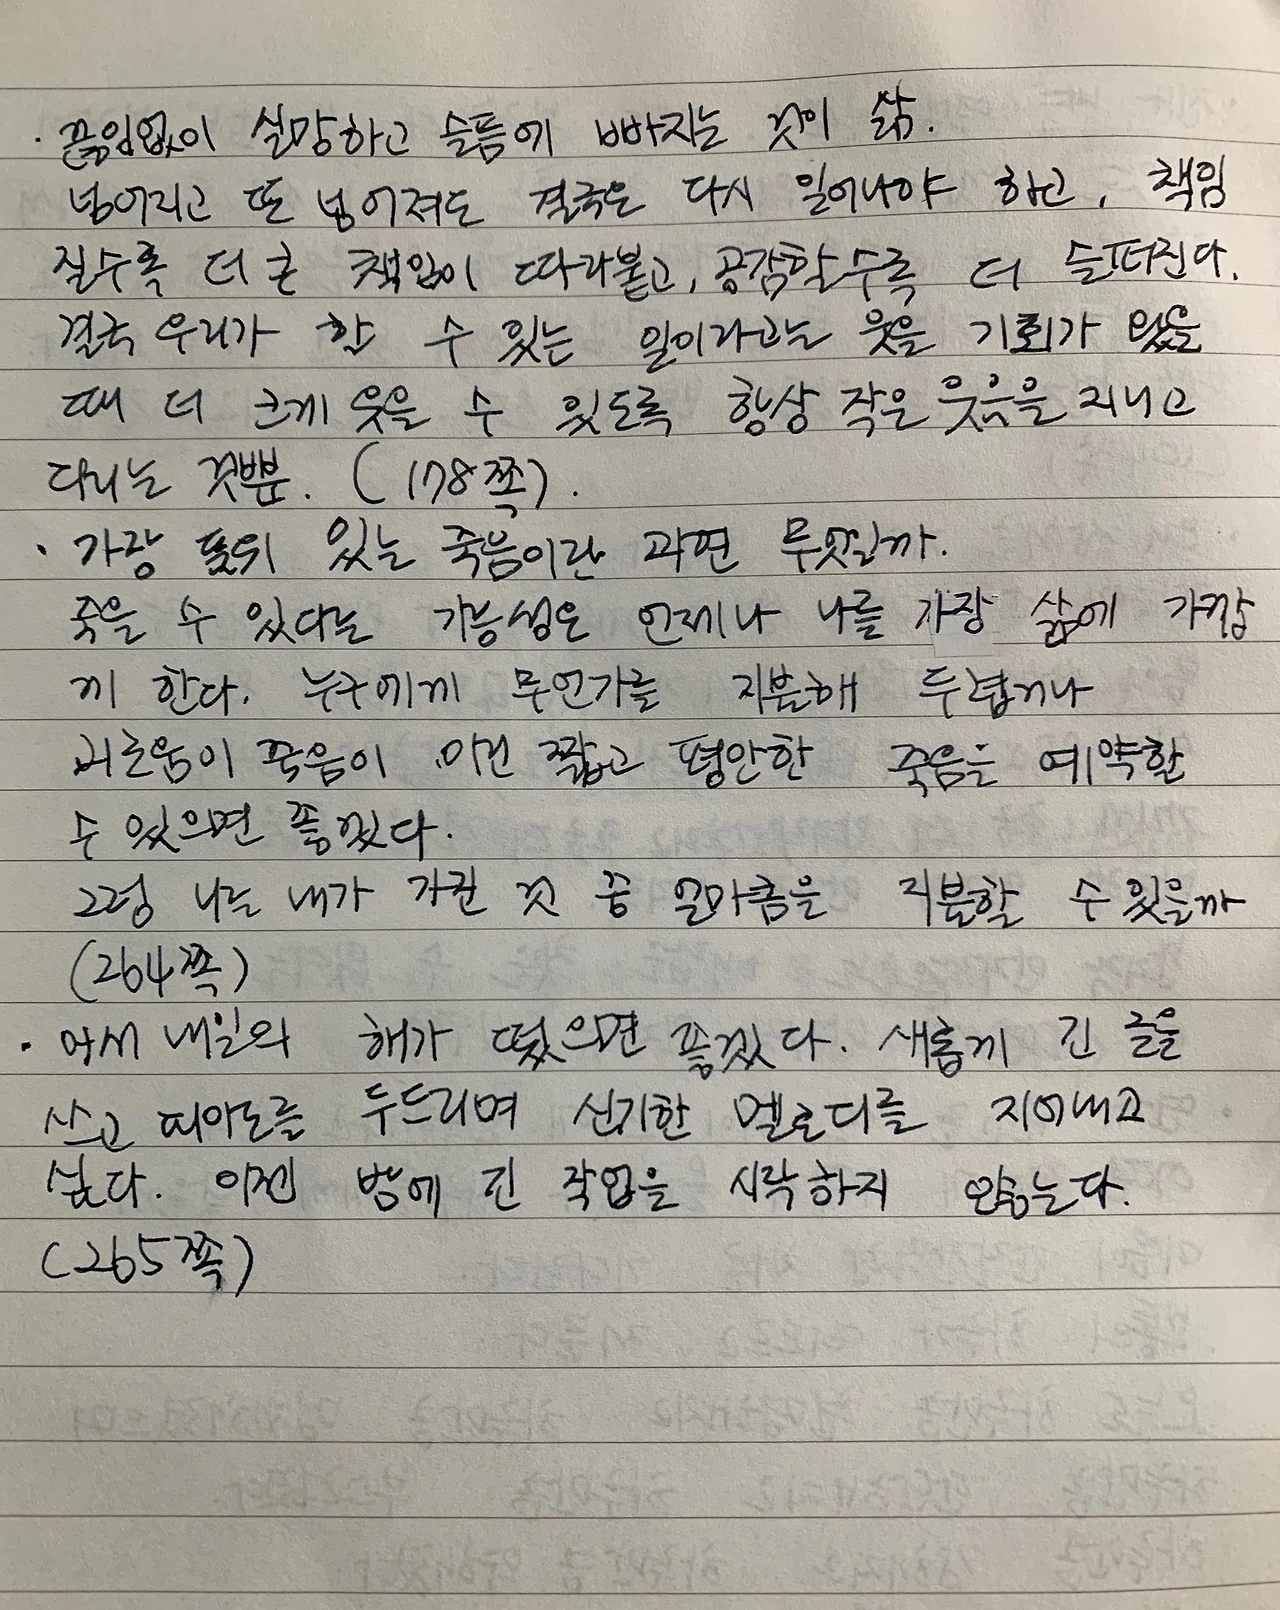 · 끊임없이 실망하고 슬픔에 빠지는 것이 삶.
넘어지고 또 넘어져도 결국은 다시 일어나야 하고, 책임
질수록 더 큰 책임이 따라붙고, 공감할수록 더 슬퍼진다.
결국 우리가 할 수 있는 일이라고는 웃을 기회가 있을
때 더 크게 웃을 수 있도록 항상 작은 웃음을 지니고
다니는 것뿐. (178쪽).
· 가장 품위 있는 죽음이란 과연 무엇일까.
죽을 수 있다는 가능성은 언제나 나를 가장 삶에 가깝
게 한다. 누구에게 무언가를 지불해 두렵거나
괴로움이 죽음이 아닌 짧고 평안한 죽음을 예약할
수 있으면 좋겠다.
그럼 나는 내가 가진 것 중 얼마큼을 지불할 수 있을까
(264쪽)
· 어서 내일의 해가 떴으면 좋겠다. 새롭게 긴 글을
쓰고 피아노를 두드리며 신기한 멜로디를 지어내고
싶다. 이젠 밤에 긴 작업을 시작하지 않는다.
(265쪽)